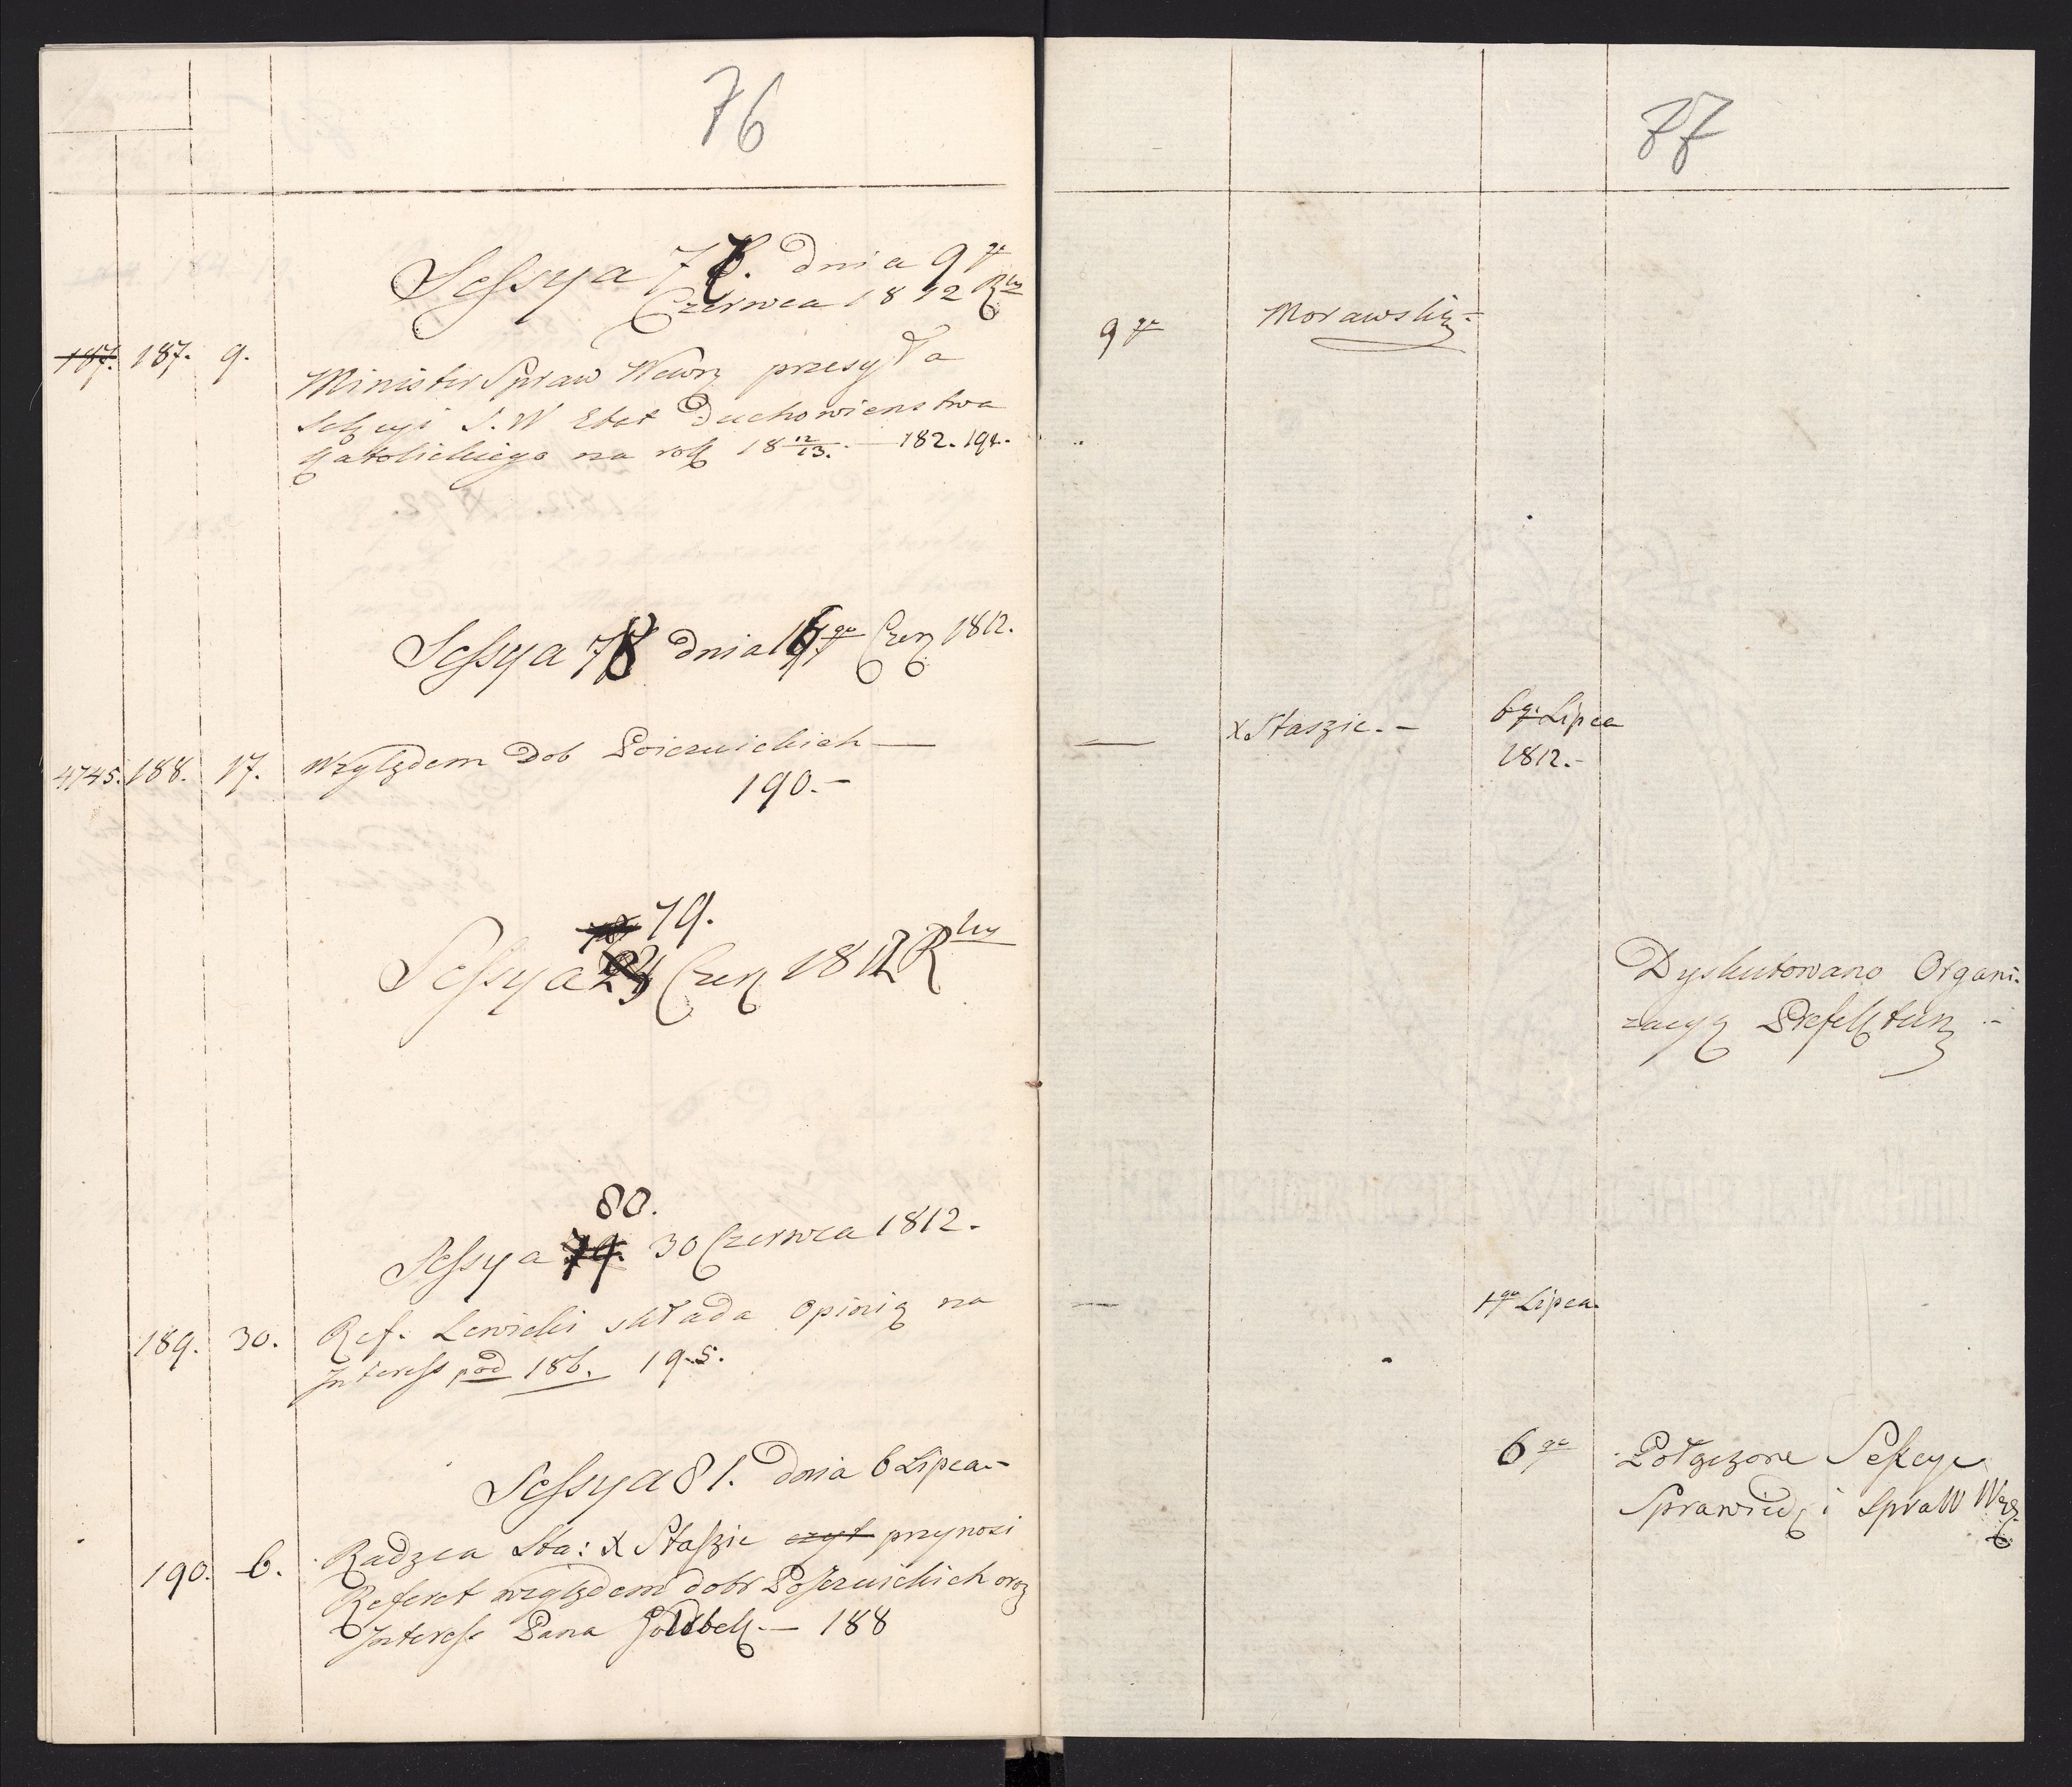 76
Sessya 77. dnia 9go
Czerwca 1812 Rku
187. 187. 9.
Minister Spraw Wewn przesyła
Sekcyi S. W Etat Duchowienstwa
Katolickiego na rok 18 12/13. — 182. 194.
Sessya 78 dnia 17go Czer 1812.
4745. 188. 17. Względem Dob Poiezuickich —
190. —
79.
Sessya 23 Czer 1812 Rku
80.
Sessya 79. 30 Czerwca 1812.
189. 30. Ref. Lewicki składa Opinią na
Interess pod 186. 195.
Sessya 81. dnia 6 Lipca —
190. 6. Radzca Sta: X Staszic czyt przynosi
Referat względem dobr Pojezuickich oraz
Interess Pana Goldbek. — 188
77
9go Morawski
— X. Staszic. — 6go Lipca
1812. —
Dyskutowano Organi-
zacyą Prefektur
— 1go Lipca.
6go Połączone Sekcye
Sprawied i Spraw Wez